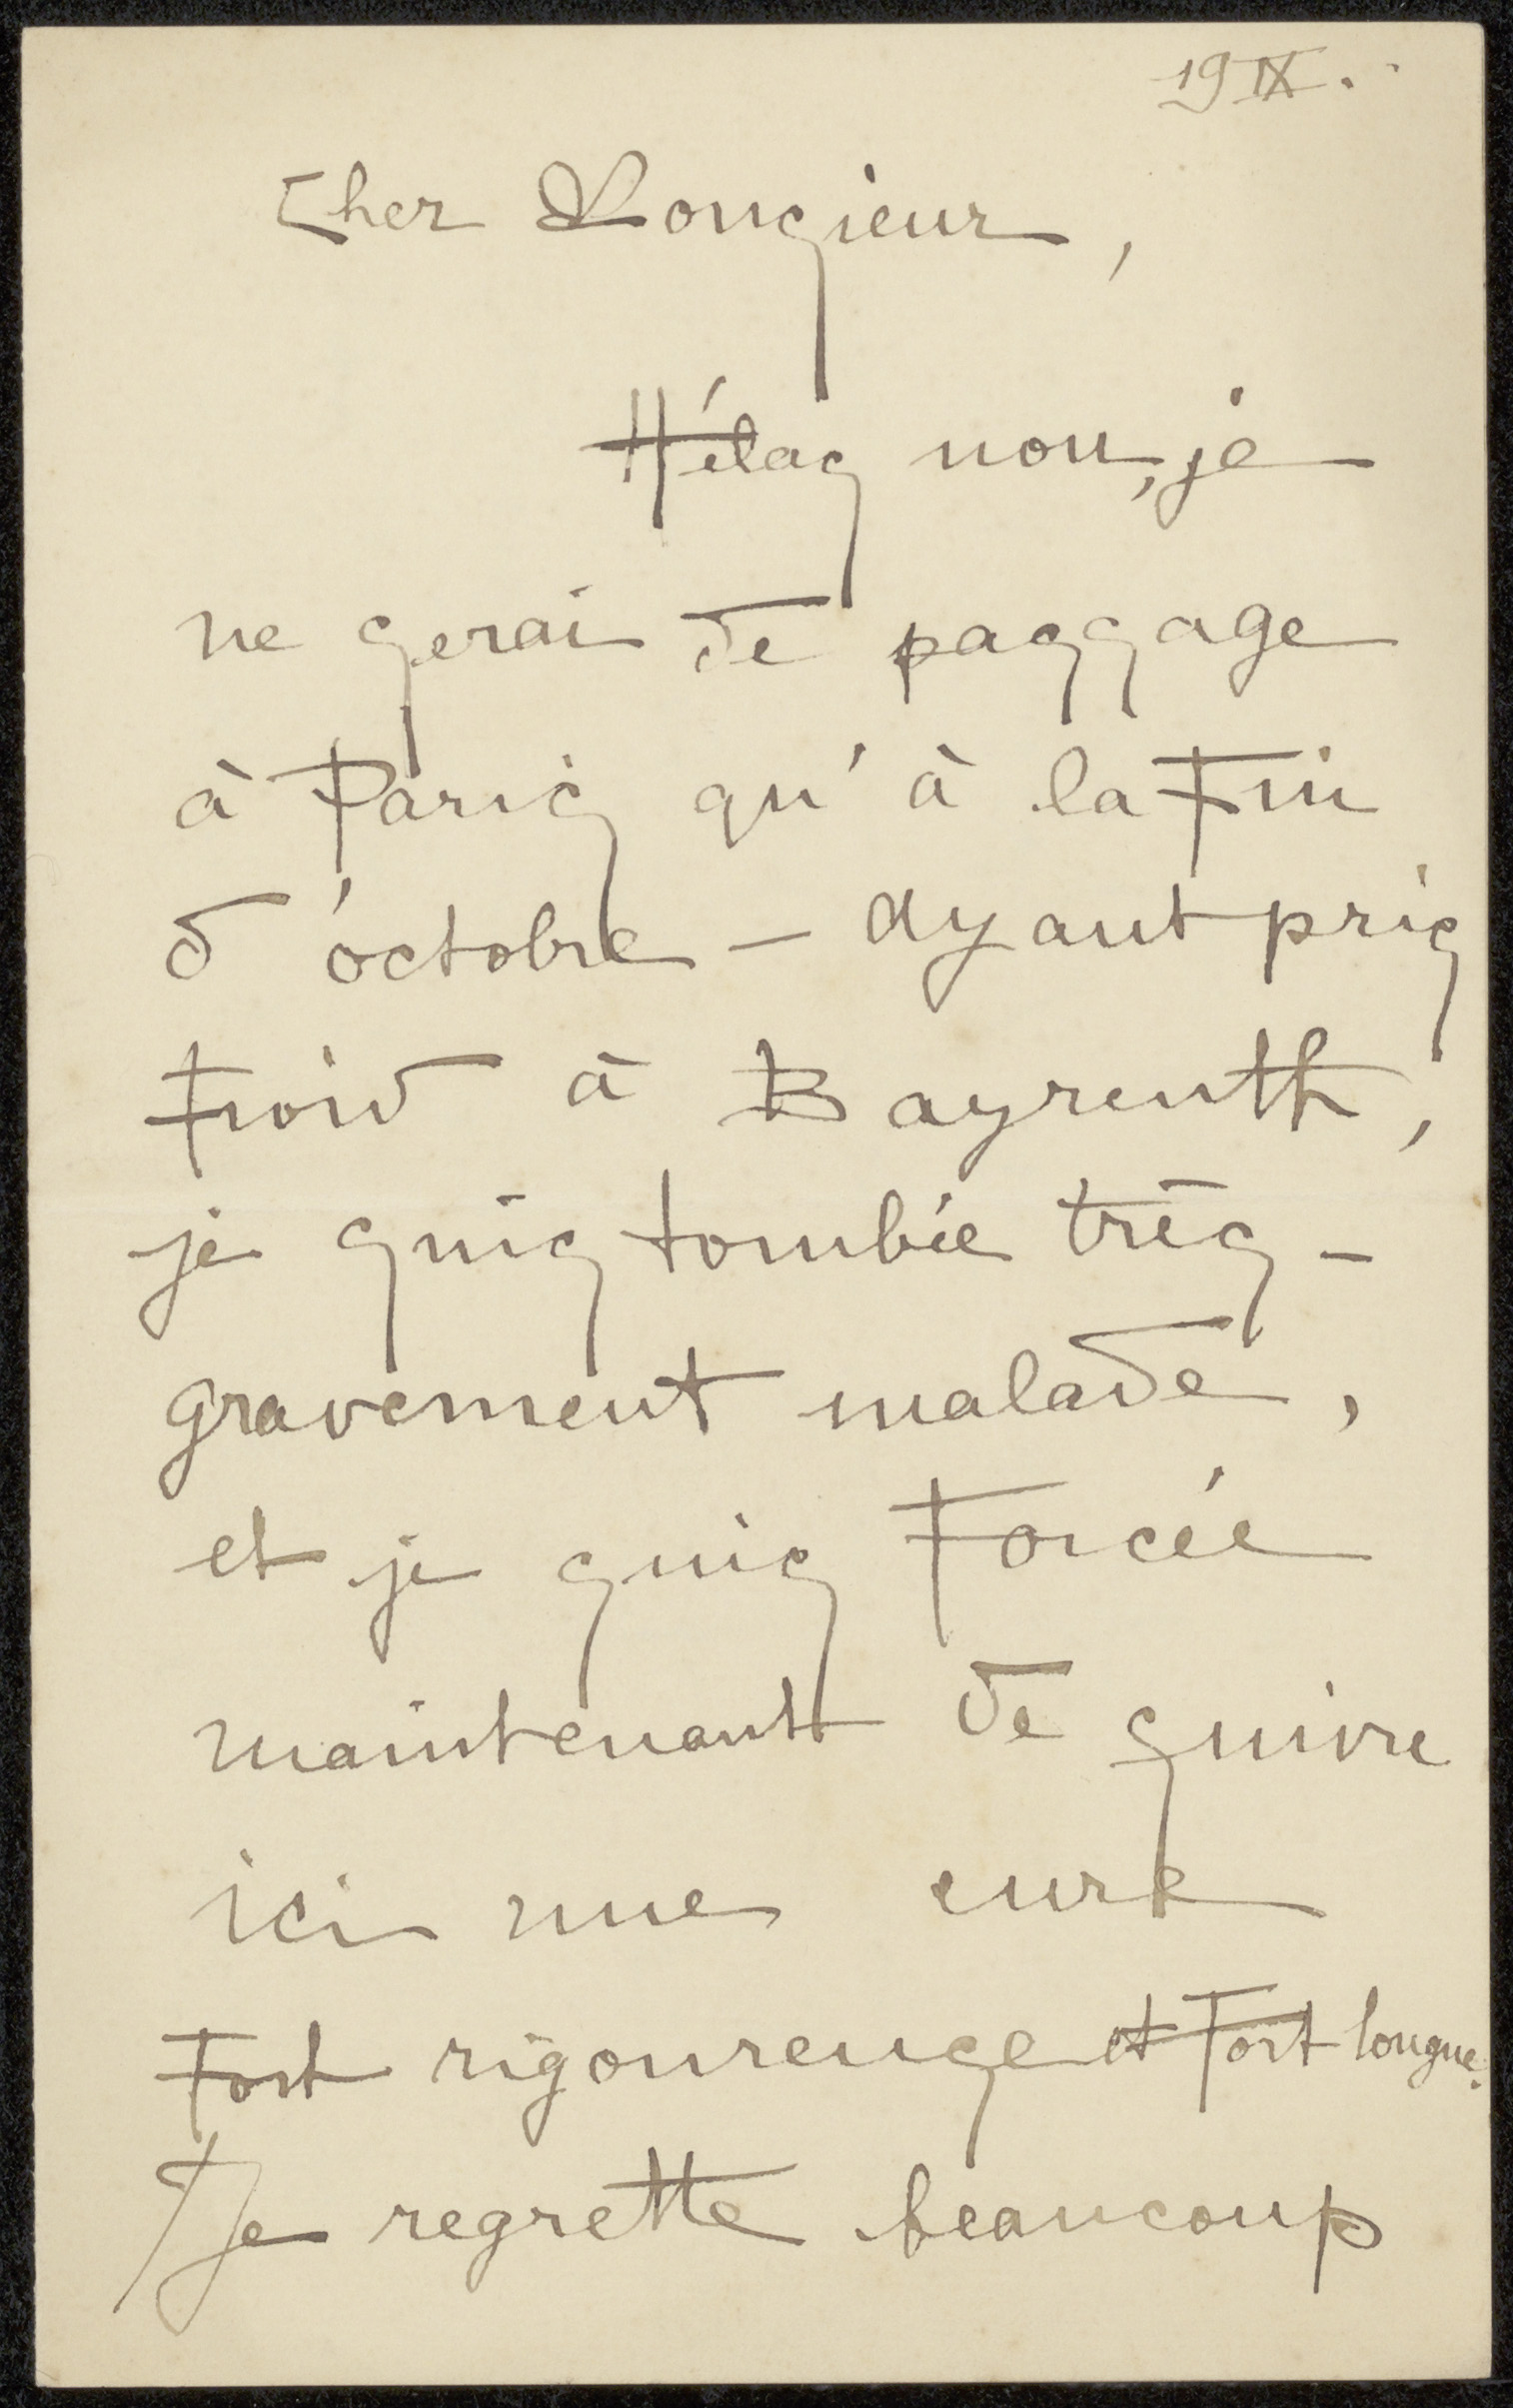 19 IX.
Cher Monsieur,
Hélas non, je
ne serai de passage
à Paris qu'à la fin
d'octobre — ayant pris
froid à Bayreuth,
je suis tombée très-
gravement malade,
et je suis forcée
maintenant de suivre
ici une cure
fort rigoureuse et fort longue.
Je regrette beaucoup